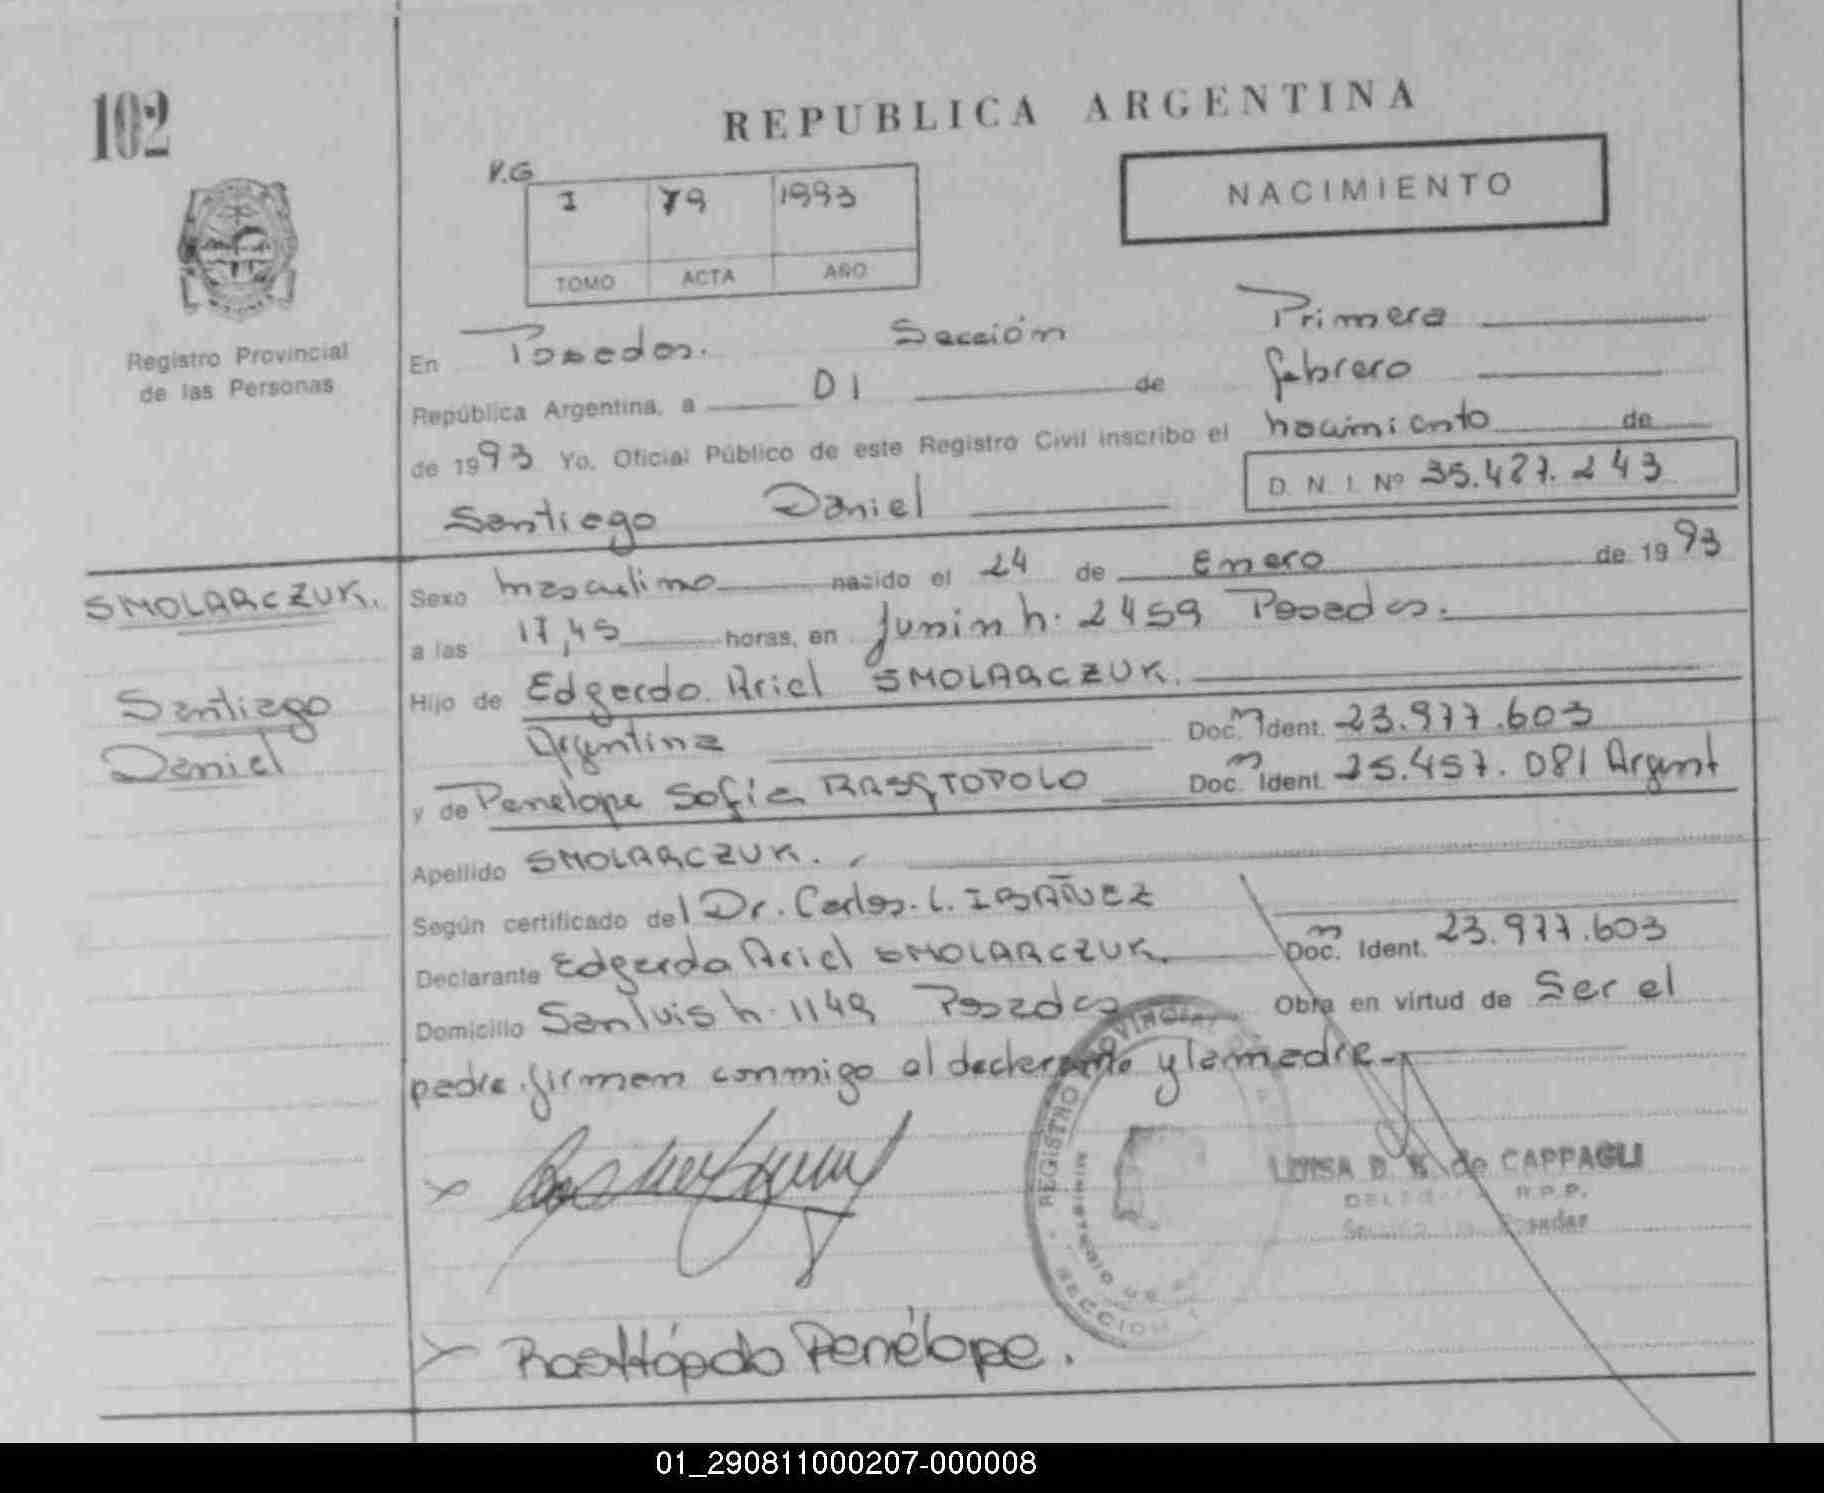 102
REPUBLICA ARGENTINA
NACIMIENTO
V.G
I 79 1993
TOMO ACTA AÑO
Registro Provincial
de las Personas
En Posadas. Sección Primera
República Argentina, a 01 de febrero
de 1993 Yo, Oficial Público de este Registro Civil inscribo el nacimiento de
Santiago Daniel
D. N. I. Nº 35.487.243
SMOLARCZUK.
Santiago
Daniel
Sexo masculino nacido el 24 de Enero de 1993
a las 17,45 horas, en Junin n. 2459 Posadas.
Hijo de Edgardo Ariel SMOLARCZUK.
Argentina Doc. m Ident. 23.977.603
y de Penelope Sofia Doc. m Ident. 25.457.081 Argent
Apellido SMOLARCZUK.
Según certificado del Dr. Carlos. L. IBAÑEZ
Declarante Edgardo Ariel SMOLARCZUK. Doc. m Ident. 23.977.603
Domicilio San luis n. 1149 Posadas Obra en virtud de Ser el
padre. firman conmigo el declarante y la madre.
REGISTRO PROVINCIAL
MINISTERIO DE
SECCION
LUISA D. de CAPPAGLI
R.P.P.
Posadas
Penélope.
01_290811000207-000008